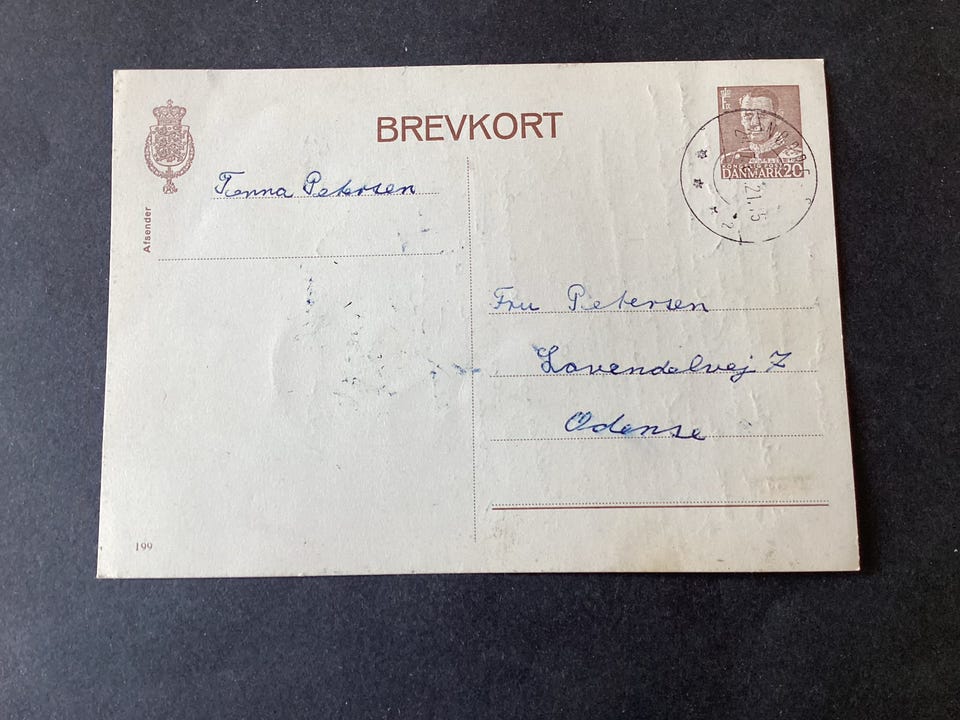 BREVKORT
KONGELIG POST
DANMARK 20
21.
Afsender
Petersen
Fru Petersen
Lavendelvej 7
Odense
199